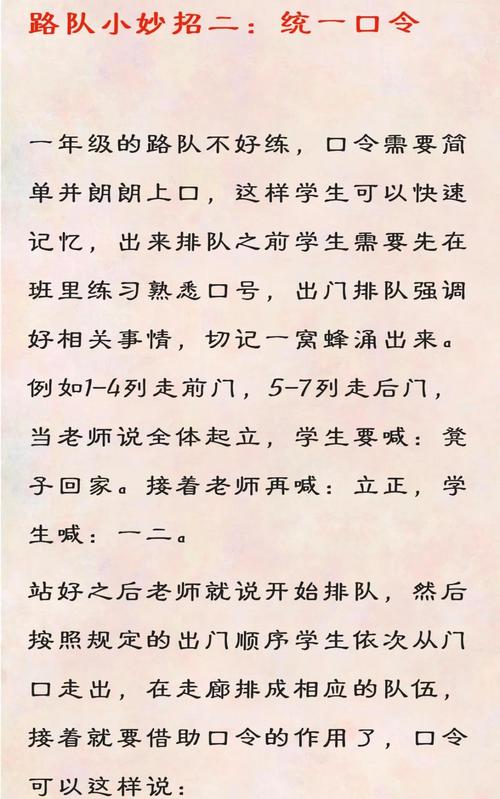 路队小妙招二：统一口令
一年级的路队不好练，口令需要简
单并朗朗上口，这样学生可以快速
记忆，出来排队之前学生需要先在
班里练习熟悉口号，出门排队强调
好相关事情，切记一窝蜂涌出来。
例如1-4列走前门，5-7列走后门，
当老师说全体起立，学生要喊：凳
子回家。接着老师再喊：立正，学
生喊：一二。
站好之后老师就说开始排队，然后
按照规定的出门顺序学生依次从门
口走出，在走廊排成相应的队伍，
接着就要借助口令的作用了，口令
可以这样说：